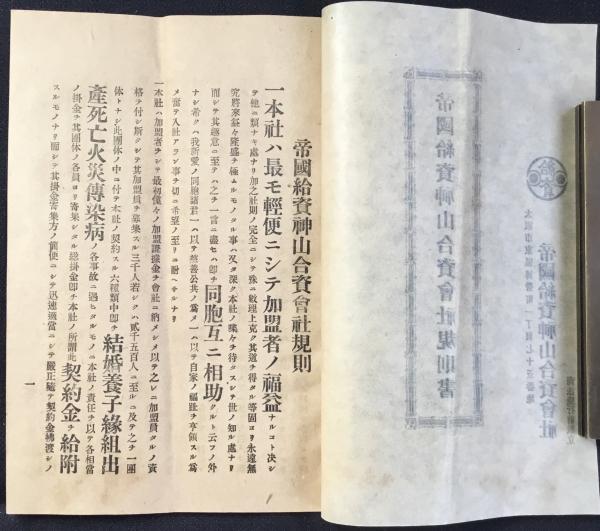 帝國給資神山合資會社規則
一本社ハ最モ輕便ニシテ加盟者ノ福益ナルコト決シ
テ他ニ類ナキ處ナリ加之社則ノ完全ニシテ殊ニ數理上克ク其道ヲ得タル等固ヨリ永遠無
究將來益々隆盛ヲ極ムルモノタル事ハ又タ深ク本社ノ喋々ヲ待タスシテ世ノ知ル處ナリ
而シテ其趣意ニ至テハ之ヲ一言ニ盡セハ即チ同胞互ニ相助クルト云フノ外
ナシ希クハ我所愛ノ同胞諸君一ハ以テ慈善公共ノ爲メ一ハ以テ自家ノ福趾ヲ亨領スル爲
メ奮テ入社アラン事ヲ切ニ希望ノ至リニ耐ヘサルナリ
一本社ハ加盟者ヲシテ最初僅々ノ加盟證據金ヲ會社ニ納メシメ以テ之レニ加盟員タルノ資
格ヲ付シ斯クシテ其加盟員ヲ募集スル三千人若シクハ貳千五百人ニ至ルニ及テ之ヲ一團
体トナシ此團体ノ中ニ付テ本社ノ契約スル六種類中即チ結婚養子緣組出
產死亡火災傳染病ノ各事故ニ遇ヒタルモノニ本社ノ責任ヲ以テ各相當
ノ掛金ヲ其團体ノ各員ヨリ寄集シタル總掛金即チ本社ノ所謂此契約金ヲ給附
スルモノナリ而シテ其掛金寄集方ノ簡便ニシテ迅速適當ニシテ嚴正隨テ契約金拂渡シノ
一
帝國給資神山合資會社規則書
帝國給資神山合資會社